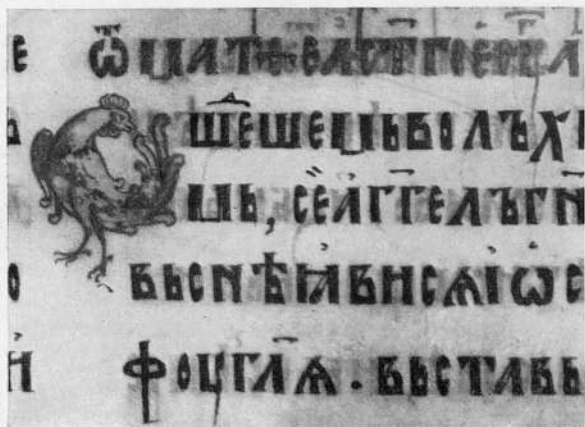 е ѿматѳеастг҃оеѵ
Ошеⷣшемьволъх
мь, сеаг҃гелъгн҃
о вьснѣꙗвисѧіѡс
й фоугл҃ѧ · вьставь